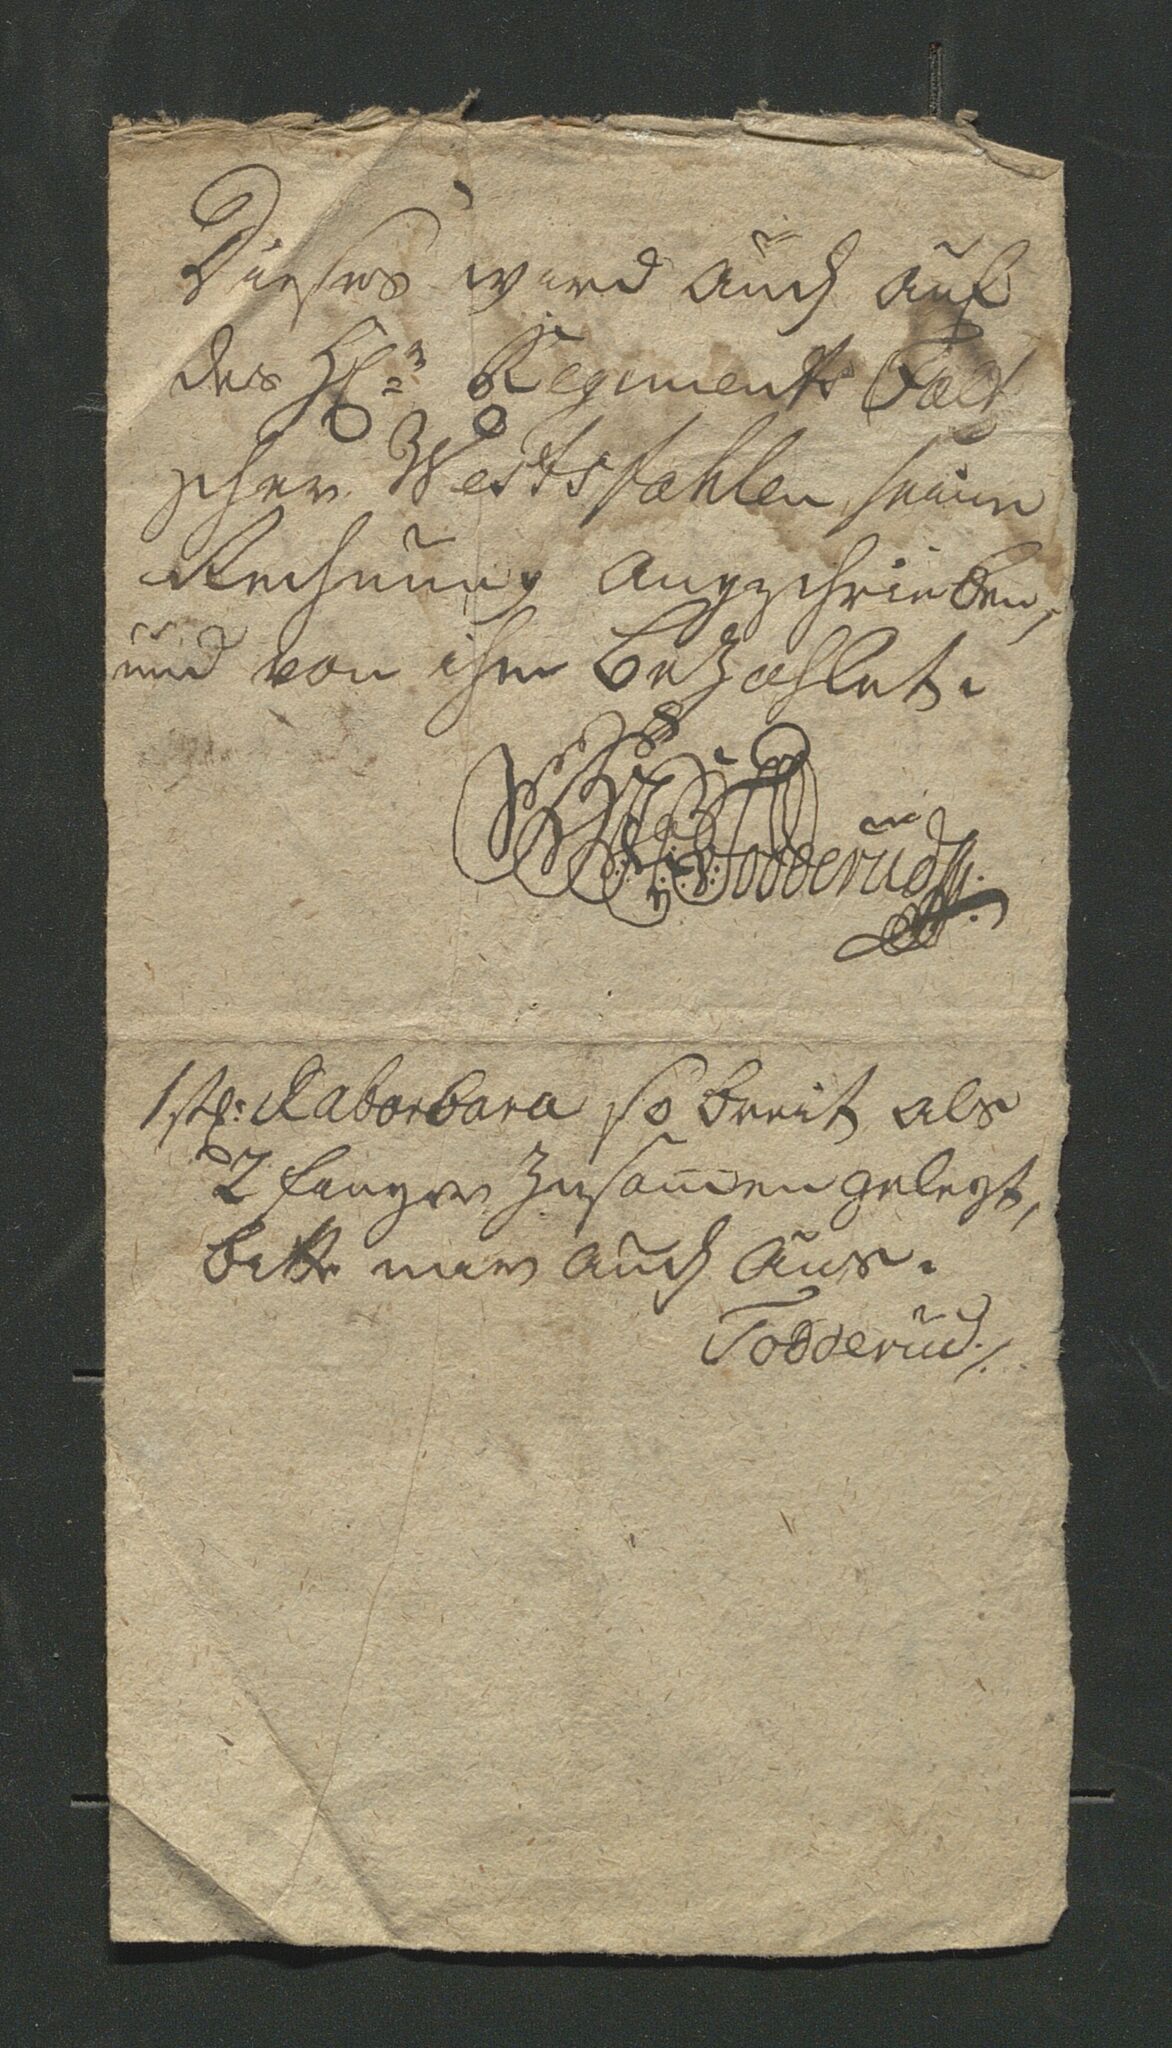 Dieses wird auch auf
des Hrn Regiments Felt
scher Westfahlen seine
Rechnung angeschrieben,
und von ihm bezahlet.
Todderud
1 st: Raborbara so breit als
2 finger zusammen gelegt,
bitte mir auch aus.
Todderud./.